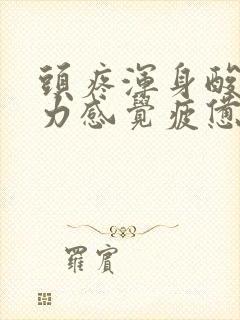 頭疼渾身酸
力感覺疲憊
羅賓